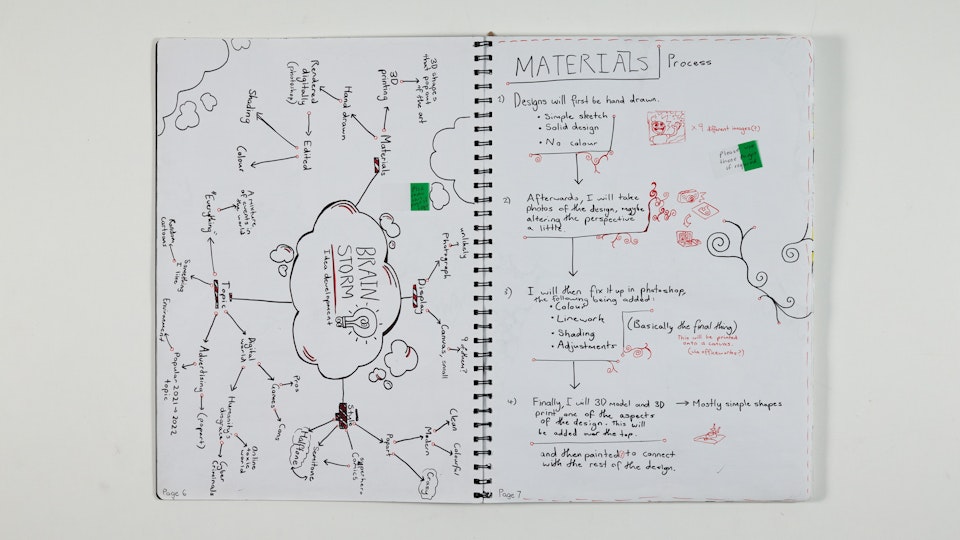 BRAIN-
STORM
Idea development
Materials
3D
printing
3D shapes
that pop out
of the art
Hand drawn
Rendered
digitally
(photoshop)
Edited
Shading
Colour
Display
Photograph
unlikely
Canvas, small
9 of them?
Style
Popart
Modern
Clean
Colourful
Crazy
superhero
Comics
Semitone
Halftone
Topic
"Everything"
A mixture
of events in
the world
Something
I like
Random
cartoons
Digital
world
Games
Pros
Cons
Humanity's
disgrace
Online
toxic
world
Cyber
Criminals
Advertising
(popart)
Popular 2021 → 2022
topic
Environment
Page 6
MATERIALS
Process
1) Designs will first be hand drawn.
• Simple sketch
• Solid design
• No colour
× 9 different images(?)
please
these
if required
2) Afterwards, I will take
photos of the design, maybe
altering the perspective
a little.
3) I will then fix it up in photoshop,
the following being added:
• Colour
• Linework
• Shading
• Adjustments
(Basically the final thing)
This will be printed
onto a canvas.
(via officeworks?)
4) Finally, I will 3D model and 3D
print one of the aspects
of the design. This will
be added over the top.
→ Mostly simple shapes
and then painted to connect
with the rest of the design.
Page 7